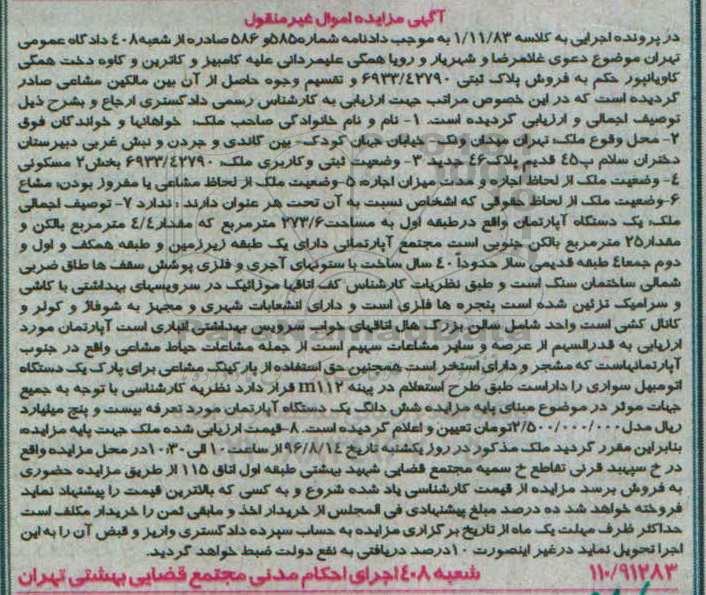 آگهی مزایده اموال غیر منقول
در پرونده اجرایی به کلاسه ۱/۱۱/۸۳ به موجب دادنامه شماره۵۸۵و ۵۸۶ صادره از شعبه۴۰۸ دادگاه عمومی
تهران موضوع دعوی غلامرضا و شهریار و رویا همگی علیمردانی علیه کامبیز و کاترین و کاوه دخت همگی
کاویانپور حکم به فروش پلاک ثبتی ۶۹۳۳/۴۲۷۹۰ و تقسیم وجوه حاصل از آن بین مالکین مشاعی صادر
گردیده است که در این خصوص مراتب جهت ارزیابی به کارشناس رسمی دادگستری ارجاع و بشرح ذیل
توصیف اجمالی و ارزیابی گردیده است. ۱- نام و نام خانوادگی صاحب ملک: خواهانها و خواندگان فوق
۲- محل وقوع ملک: تهران میدان ونک- خیابان جهان کودک- بین گاندی و جردن و نبش غربی دبیرستان
دختران سلام پ۴۵ قدیم پلاک۴۶ جدید ۳- وضعیت ثبتی وکاربری ملک: ۶۹۳۳/۴۲۷۹۰ بخش۲ مسکونی
۴- وضعیت ملک از لحاظ اجاره و مدت میزان اجاره: ۵-وضعیت ملک از لحاظ مشاعی یا مفروز بودن: مشاع
۶-وضعیت ملک از لحاظ حقوقی که اشخاص نسبت به آن تحت هر عنوان دارند : ندارد ۷- توصیف اجمالی
ملک: یک دستگاه آپارتمان واقع درطبقه اول به مساحت۲۷۳/۶ مترمربع که مقدار۴/۴ مترمربع بالکن و
مقدار۲۵ مترمربع بالکن جنوبی است مجتمع آپارتمانی دارای یک طبقه زیرزمین و طبقه همکف و اول و
دوم جمعا۴ طبقه قدیمی ساز حدوداً ۴۰ سال ساخت با ستونهای آجری و فلزی پوشش سقف ها طاق ضربی
شمالی ساختمان سنگ است و طبق نظریات کارشناس کف اتاقها موزائیک در سرویسهای بهداشتی با کاشی
و سرامیک تزئین شده است پنجره ها فلزی است و دارای انشعابات شهری و مجهز به شوفاژ و کولر و
کانال کشی است واحد شامل سالن بزرگ هال اتاقهای خواب سرویس بهداشتی انباری است آپارتمان مورد
ارزیابی به قدرالسهم از عرصه و سایر مشاعات سهیم است از جمله مشاعات حیاط مشاعی واقع در جنوب
آپارتمانهاست که مشجر و دارای استخر است همچنین حق استفاده از پارکینگ مشاعی برای پارک یک دستگاه
اتومبیل سواری را داراست طبق طرح استعلام در پهنه m۱۱۲ قرار دارد نظریه کارشناسی با توجه به جمیع
جهات موثر در موضوع مبنای پایه مزایده شش دانگ یک دستگاه آپارتمان مورد تعرفه بیست و پنج میلیارد
ریال مدل۲/۵۰۰/۰۰۰/۰۰۰تومان تعیین و اعلام گردیده است. ۸-قیمت ارزیابی شده ملک جهت پایه مزایده:
بنابراین مقرر گردید ملک مذکور در روز یکشنبه تاریخ ۹۶/۸/۱۴از ساعت۱۰ الی۱۰:۳۰در محل مزایده واقع
در خ سپهبد قرنی تقاطع خ سمیه مجتمع قضایی شهید بهشتی طبقه اول اتاق ۱۱۵ از طریق مزایده حضوری
به فروش برسد مزایده از قیمت کارشناسی یاد شده شروع و به کسی که بالاترین قیمت را پیشنهاد نماید
فروخته خواهد شد ده درصد مبلغ پیشنهادی فی المجلس از خریدار اخذ و مابقی ثمن را خریدار مکلف است
حداکثر ظرف مهلت یک ماه از تاریخ برگزاری مزایده به حساب سپرده دادگستری واریز و قبض آن را به این
اجرا تحویل نماید درغیر اینصورت ۱۰درصد دریافتی به نفع دولت ضبط خواهد گردید.
۱۱۰/۹۱۲۸۳ شعبه ۴۰۸ اجرای احکام مدنی مجتمع قضایی بهشتی تهران